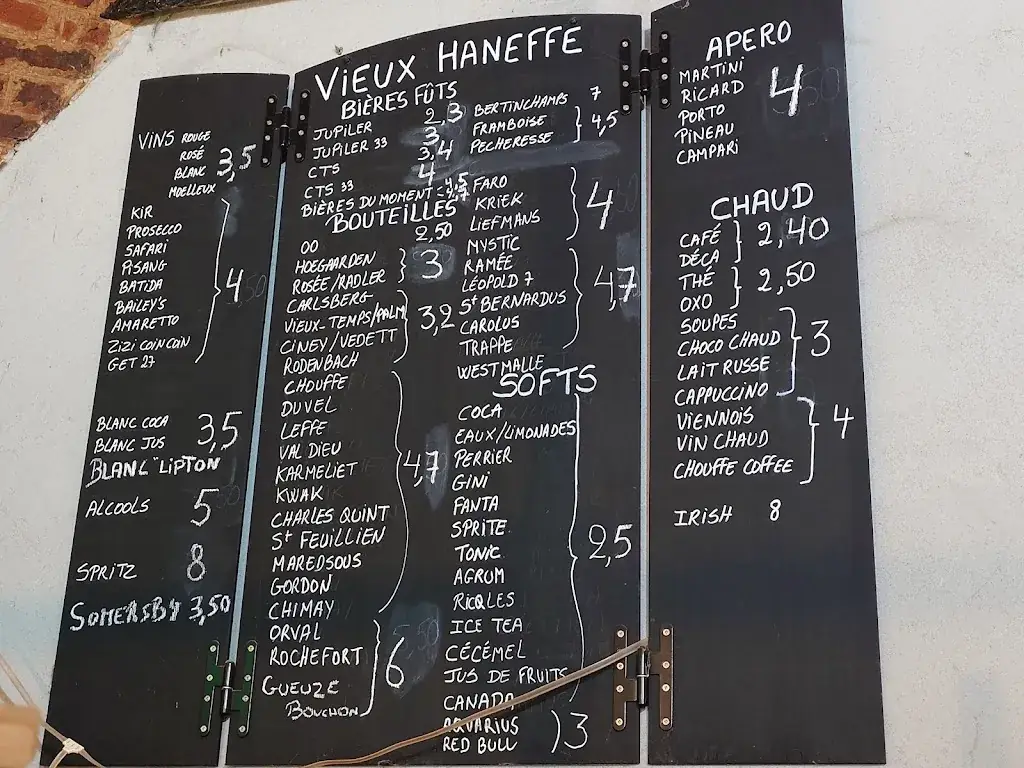 VINS ROUGE
ROSÉ
BLANC
MOELLEUX
3,5
KIR
PROSECCO
SAFARI
PISANG
BATIDA
BAILEY'S
AMARETTO
ZIZI COIN COIN
GET 27
4
BLANC COCA
BLANC JUS
BLANC "LIPTON
3,5
ALCOOLS 5
SPRITZ 8
SOMERSBY 3,50
VIEUX HANEFFE
BIÈRES FÛTS
JUPILER 2,3
JUPILER 33 3
CTS 3,4
CTS 33 4
BIÈRES DU MOMENT
BOUTEILLES
OO 2,50
HOEGAARDEN
ROSÉE/RADLER
3
CARLSBERG
VIEUX-TEMPS/PALM
CINEY/VEDETT
RODENBACH
3,2
CHOUFFE
DUVEL
LEFFE
VAL DIEU
KARMELIET
KWAK
CHARLES QUINT
St FEUILLIEN
MAREDSOUS
GORDON
CHIMAY
4,7
ORVAL
ROCHEFORT
GUEUZE
BOUCHON
6
BERTINCHAMPS 7
FRAMBOISE
PECHERESSE
4,5
FARO
KRIEK
LIEFMANS
4
MYSTIC
RAMÉE
LÉOPOLD 7
St BERNARDUS
CAROLUS
TRAPPE
WESTMALLE
4,7
SOFTS
COCA
EAUX/LIMONADES
PERRIER
GINI
FANTA
SPRITE
TONIC
AGRUM
RICQLES
ICE TEA
CÉCÉMEL
JUS DE FRUITS
CANADA
2,5
AQUARIUS
RED BULL
3
APERO
MARTINI
RICARD
PORTO
PINEAU
CAMPARI
4
CHAUD
CAFÉ
DÉCA
2,40
THÉ
OXO
2,50
SOUPES
CHOCO CHAUD
LAIT RUSSE
CAPPUCCINO
3
VIENNOIS
VIN CHAUD
CHOUFFE COFFEE
4
IRISH 8